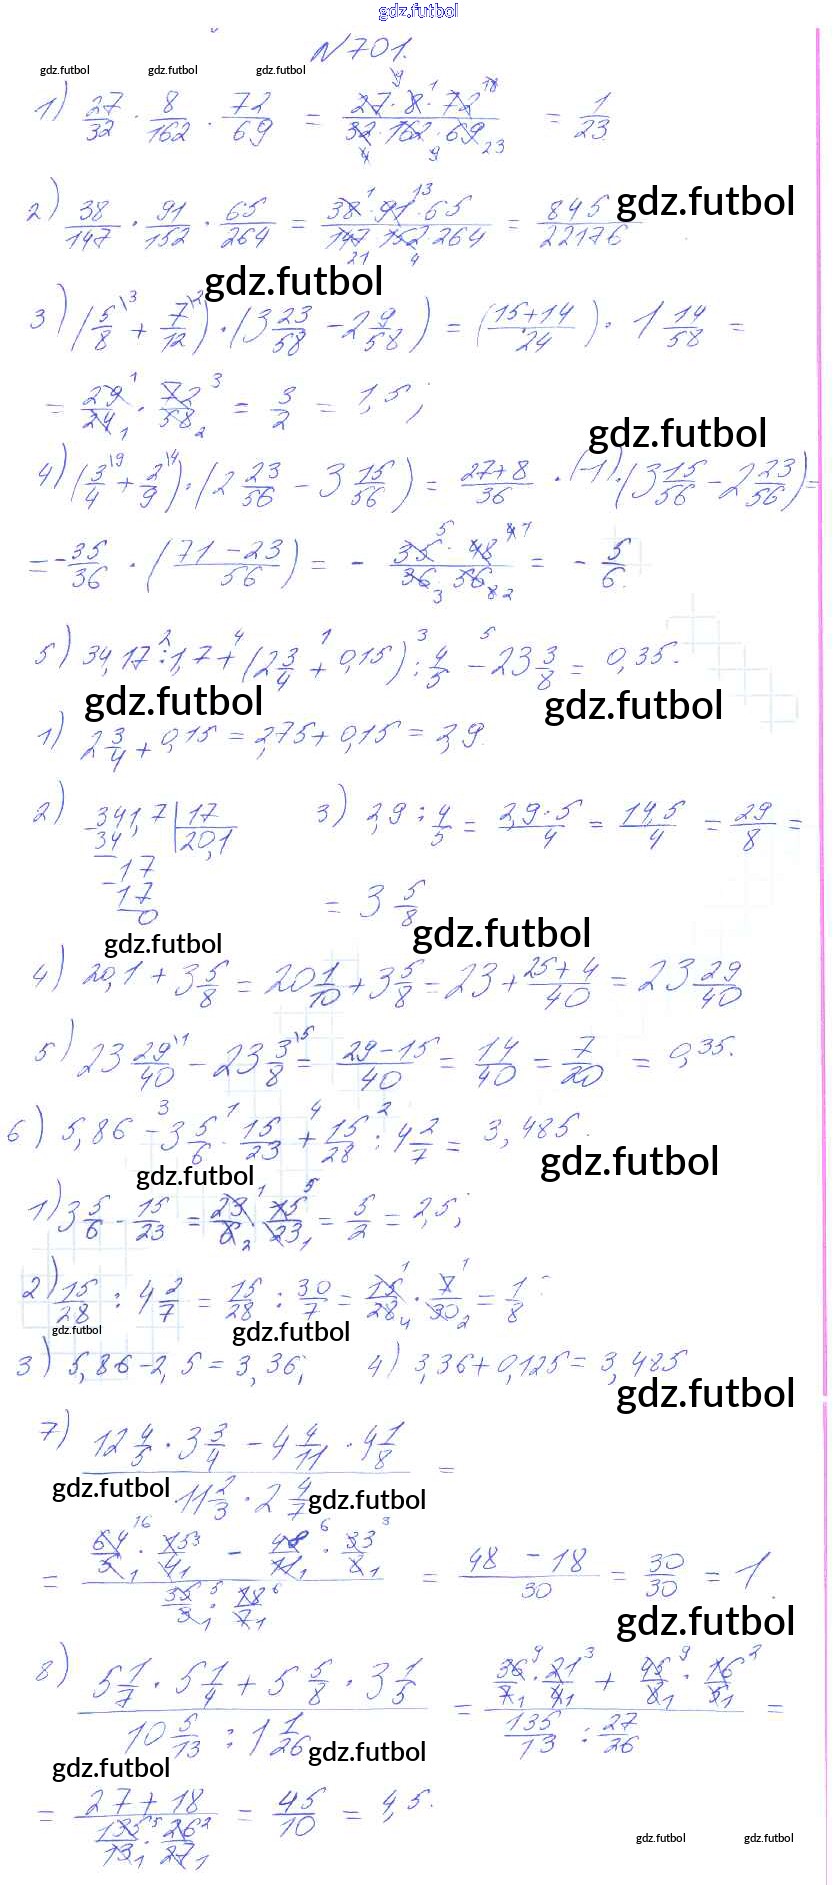 gdz.futbol
N 701.
gdz.futbol gdz.futbol gdz.futbol
1) 27/32 · 8/162 · 72/69 = 27·8·72/32·162·69 = 1/23
2) 38/147 · 91/152 · 65/264 = 38·91·65/147·152·264 = 845/22176
gdz.futbol
gdz.futbol
3) (5/8 + 7/12) · (3 23/58 - 2 9/58) = (15+14/24) · 1 14/58 =
= 29/24 · 72/58 = 3/2 = 1,5;
gdz.futbol
4) (3/4 + 2/9) · (2 23/56 - 3 15/56) = 27+8/36 · (-1) · (3 15/56 - 2 23/56) =
= -35/36 · (71-23/56) = - 35·48/36·56 = - 5/6.
5) 34,17 : 1,7 + (2 3/4 + 0,15) : 4/5 - 23 3/8 = 0,35.
gdz.futbol gdz.futbol
1) 2 3/4 + 0,15 = 2,75 + 0,15 = 2,9.
2) 341,7 | 17 3) 2,9 : 4/5 = 2,9·5/4 = 14,5/4 = 29/8 =
34 20,1
17
17
0
= 3 5/8
gdz.futbol gdz.futbol
4) 20,1 + 3 5/8 = 20 1/10 + 3 5/8 = 23 + 25+4/40 = 23 29/40
5) 23 29/40 - 23 3/8 = 29-15/40 = 14/40 = 7/20 = 0,35.
6) 5,86 - 3 5/6 · 15/23 + 15/28 : 4 2/7 = 3,485.
gdz.futbol gdz.futbol
1) 3 5/6 · 15/23 = 23/6 · 15/23 = 5/2 = 2,5;
2) 15/28 : 4 2/7 = 15/28 : 30/7 = 15/28 · 7/30 = 1/8;
gdz.futbol gdz.futbol
3) 5,86 - 2,5 = 3,36; 4) 3,36 + 0,125 = 3,485
gdz.futbol
7) 12 4/5 · 3 3/4 - 4 4/11 · 4 1/8 =
11 2/3 · 2 4/7
gdz.futbol gdz.futbol
= 64/5 · 15/4 - 48/11 · 33/8 = 48 - 18/30 = 30/30 = 1.
35/3 · 18/7
gdz.futbol
8) 5 1/7 · 5 1/4 + 5 5/8 · 3 1/5 = 36/7 · 21/4 + 45/8 · 16/5 =
10 5/13 : 1 1/26 135/13 : 27/26
gdz.futbol gdz.futbol
= 27 + 18 = 45/10 = 4,5.
135/13 · 26/27
gdz.futbol gdz.futbol